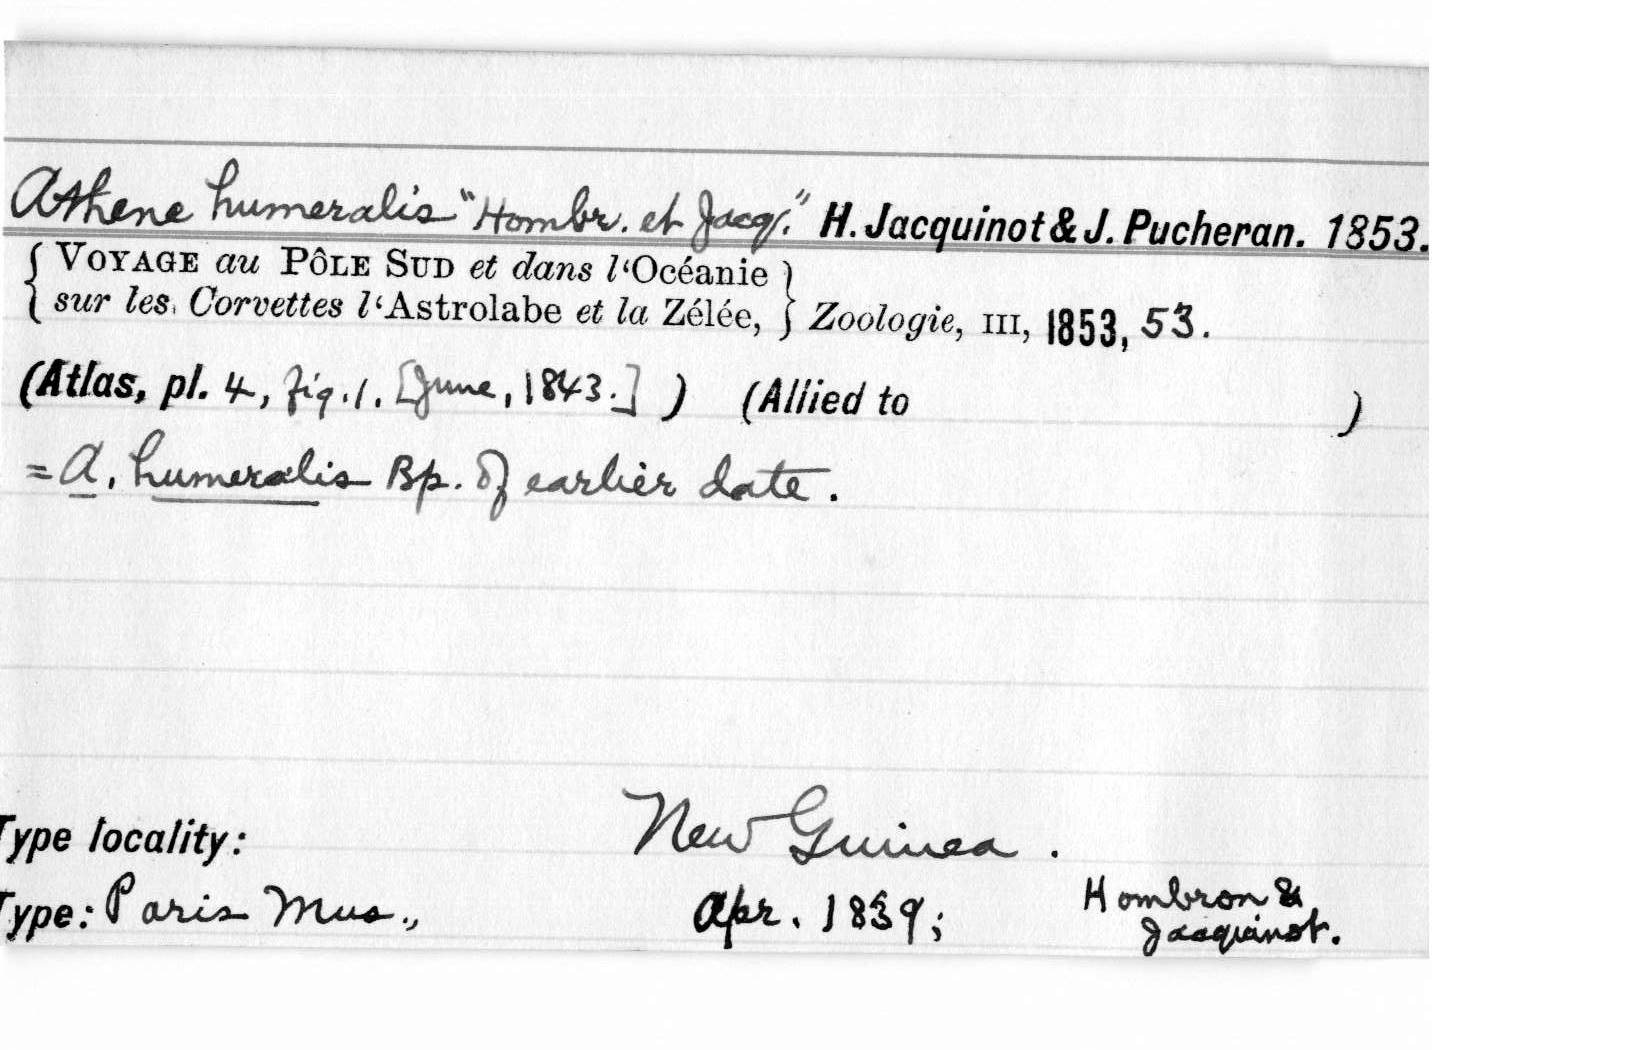 Athene humeralis "Hombr. et Jacq." H. Jacquinot & J. Pucheran. 1853.
{ VOYAGE au PÔLE SUD et dans l'Océanie }
{ sur les Corvettes l'Astrolabe et la Zélée, } Zoologie, III, 1853, 53.
(Atlas, pl. 4, fig. 1. [June, 1843.] ) (Allied to )
= A. humeralis Bp. of earlier date.
Type locality: New Guinea.
Type: Paris Mus., Apr. 1839; Hombron &
Jacquinot.